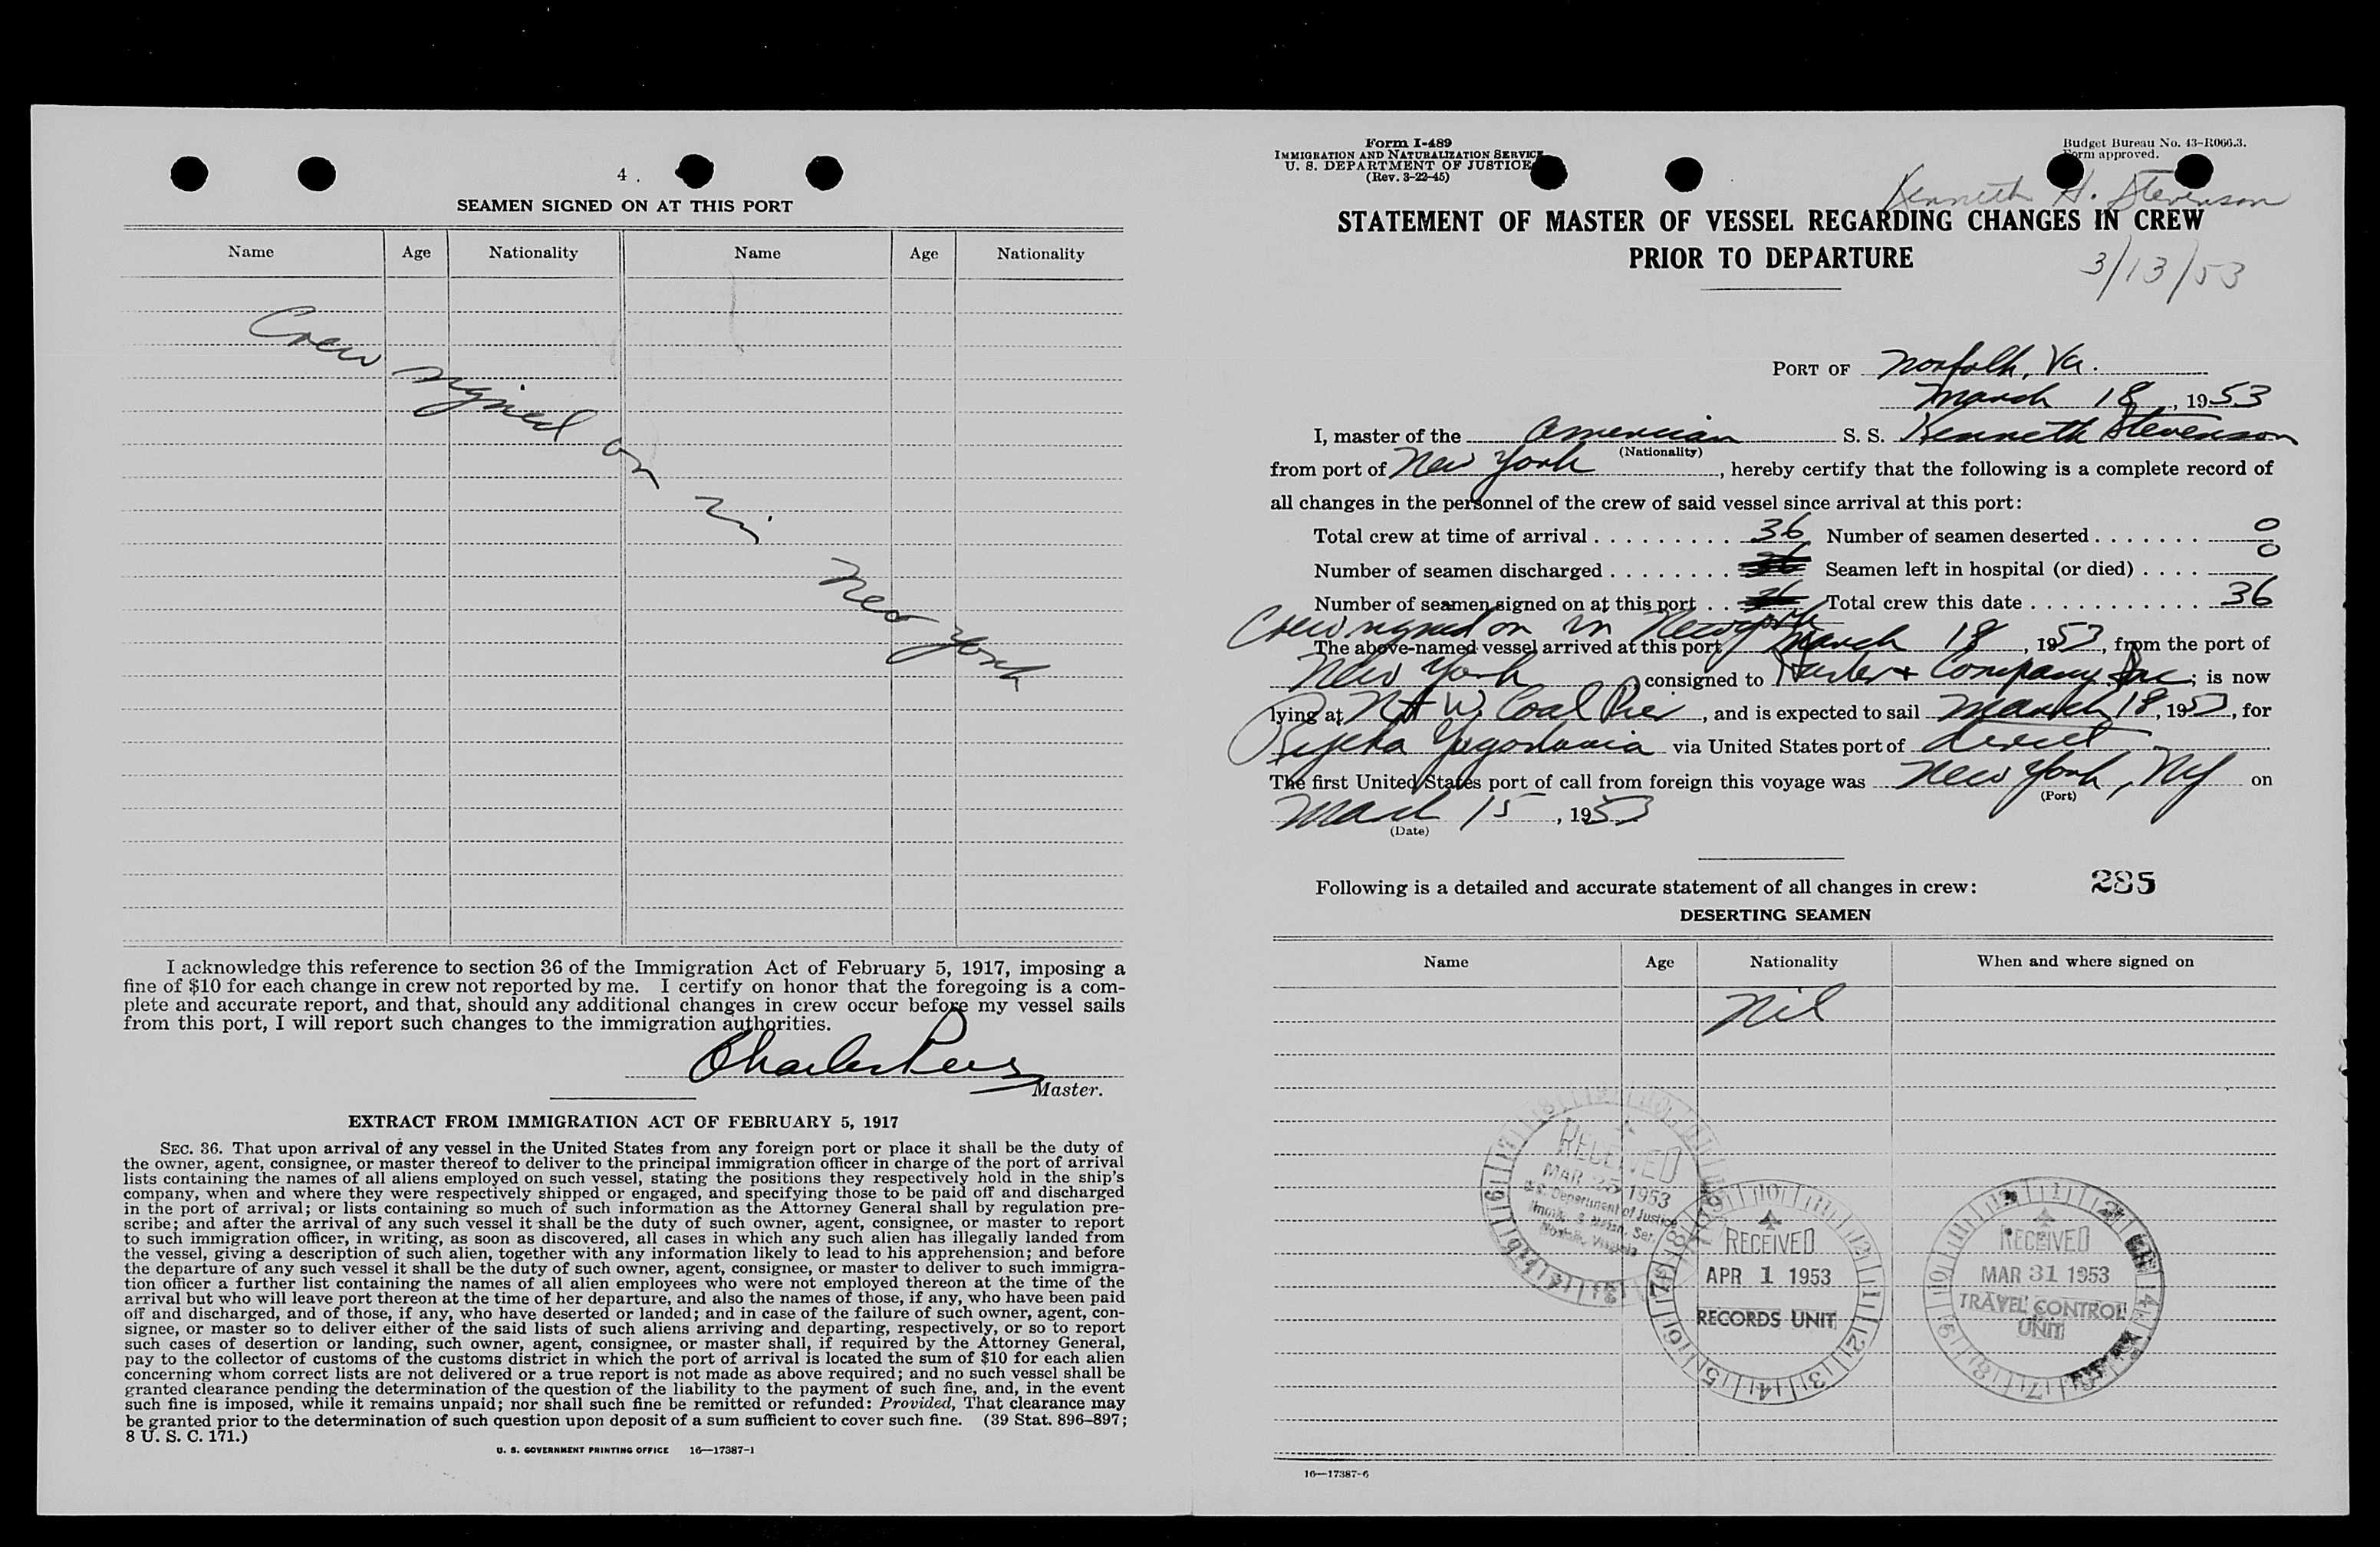 4
SEAMEN SIGNED ON AT THIS PORT
Name Age Nationality Name Age Nationality
Crew signed on in New York
I acknowledge this reference to section 36 of the Immigration Act of February 5, 1917, imposing a
fine of $10 for each change in crew not reported by me. I certify on honor that the foregoing is a com-
plete and accurate report, and that, should any additional changes in crew occur before my vessel sails
from this port, I will report such changes to the immigration authorities.
Charles
Master.
EXTRACT FROM IMMIGRATION ACT OF FEBRUARY 5, 1917
SEC. 36. That upon arrival of any vessel in the United States from any foreign port or place it shall be the duty of
the owner, agent, consignee, or master thereof to deliver to the principal immigration officer in charge of the port of arrival
lists containing the names of all aliens employed on such vessel, stating the positions they respectively hold in the ship's
company, when and where they were respectively shipped or engaged, and specifying those to be paid off and discharged
in the port of arrival; or lists containing so much of such information as the Attorney General shall by regulation pre-
scribe; and after the arrival of any such vessel it shall be the duty of such owner, agent, consignee, or master to report
to such immigration officer, in writing, as soon as discovered, all cases in which any such alien has illegally landed from
the vessel, giving a description of such alien, together with any information likely to lead to his apprehension; and before
the departure of any such vessel it shall be the duty of such owner, agent, consignee, or master to deliver to such immigra-
tion officer a further list containing the names of all alien employees who were not employed thereon at the time of the
arrival but who will leave port thereon at the time of her departure, and also the names of those, if any, who have been paid
off and discharged, and of those, if any, who have deserted or landed; and in case of the failure of such owner, agent, con-
signee, or master so to deliver either of the said lists of such aliens arriving and departing, respectively, or so to report
such cases of desertion or landing, such owner, agent, consignee, or master shall, if required by the Attorney General,
pay to the collector of customs of the customs district in which the port of arrival is located the sum of $10 for each alien
concerning whom correct lists are not delivered or a true report is not made as above required; and no such vessel shall be
granted clearance pending the determination of the question of the liability to the payment of such fine, and, in the event
such fine is imposed, while it remains unpaid; nor shall such fine be remitted or refunded: Provided, That clearance may
be granted prior to the determination of such question upon deposit of a sum sufficient to cover such fine. (39 Stat. 896–897;
8 U. S. C. 171.)
U. S. GOVERNMENT PRINTING OFFICE 16—17387-1
Form I-489
IMMIGRATION AND NATURALIZATION SERVICE
U. S. DEPARTMENT OF JUSTICE
(Rev. 3-22-45)
Budget Bureau No. 43-R066.3.
Form approved.
Kenneth H. Stevenson
STATEMENT OF MASTER OF VESSEL REGARDING CHANGES IN CREW
PRIOR TO DEPARTURE
3/13/53
PORT OF Norfolk, Va.
March 18, 1953
I, master of the American S. S. Kenneth Stevenson
(Nationality)
from port of New York, hereby certify that the following is a complete record of
all changes in the personnel of the crew of said vessel since arrival at this port:
Total crew at time of arrival 36 Number of seamen deserted 0
Number of seamen discharged Seamen left in hospital (or died) 0
Number of seamen signed on at this port Total crew this date 36
Crew signed on in New York
The above-named vessel arrived at this port March 18, 1953, from the port of
New York, consigned to & Company, Inc; is now
lying at N & W. Coal Pier, and is expected to sail March 18, 1953, for
Rijeka Yugoslavia via United States port of direct
The first United States port of call from foreign this voyage was New York, NY on
(Port)
March 15, 1953
(Date)
Following is a detailed and accurate statement of all changes in crew: 285
DESERTING SEAMEN
Name Age Nationality When and where signed on
Nil
RECEIVED
MAR 25 1953
U.S. Department of Justice
Immig. & Natzn. Ser.
Norfolk, Virginia
RECEIVED
APR 1 1953
RECORDS UNIT
RECEIVED
MAR 31 1953
TRAVEL CONTROL
UNIT
16—17387-6